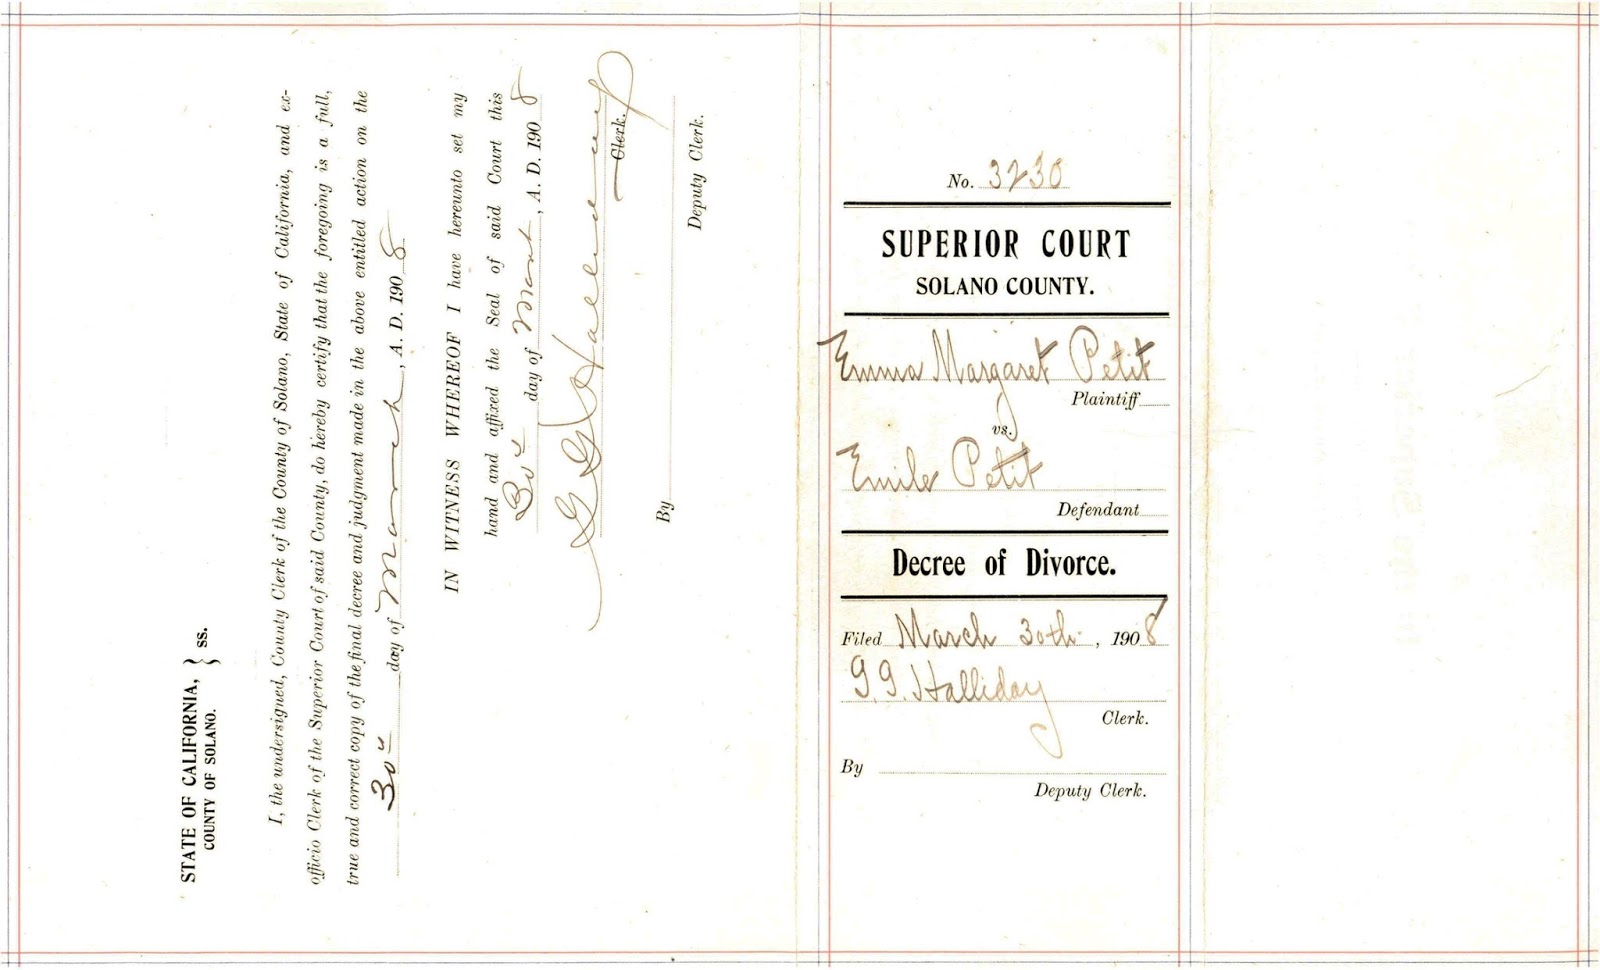 STATE OF CALIFORNIA, } ss.
COUNTY OF SOLANO.
I, the undersigned, County Clerk of the County of Solano, State of California, and ex-
officio Clerk of the Superior Court of said County, do hereby certify that the foregoing is a full,
true and correct copy of the final decree and judgment made in the above entitled action on the
30" day of March, A. D. 1908
IN WITNESS WHEREOF I have hereunto set my
hand and affixed the Seal of said Court this
30" day of March, A. D. 1908
G G Halliday
Clerk.
By
Deputy Clerk.
No. 3230
SUPERIOR COURT
SOLANO COUNTY.
Emma Margaret Petit
Plaintiff
vs.
Emile Petit
Defendant
Decree of Divorce.
Filed March 30th, 1908
G. G. Halliday
Clerk.
By
Deputy Clerk.